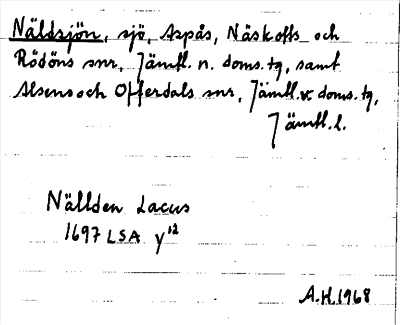 Näldsjön, sjö, Aspås, Näskotts och
Rödöns snr, Jämtl. n. doms. tg, samt
Alsens och Offerdals snr, Jämtl. v. doms. tg,
Jämtl. l.
Nällden Lacus
1697 LSA y¹²
A.H. 1968